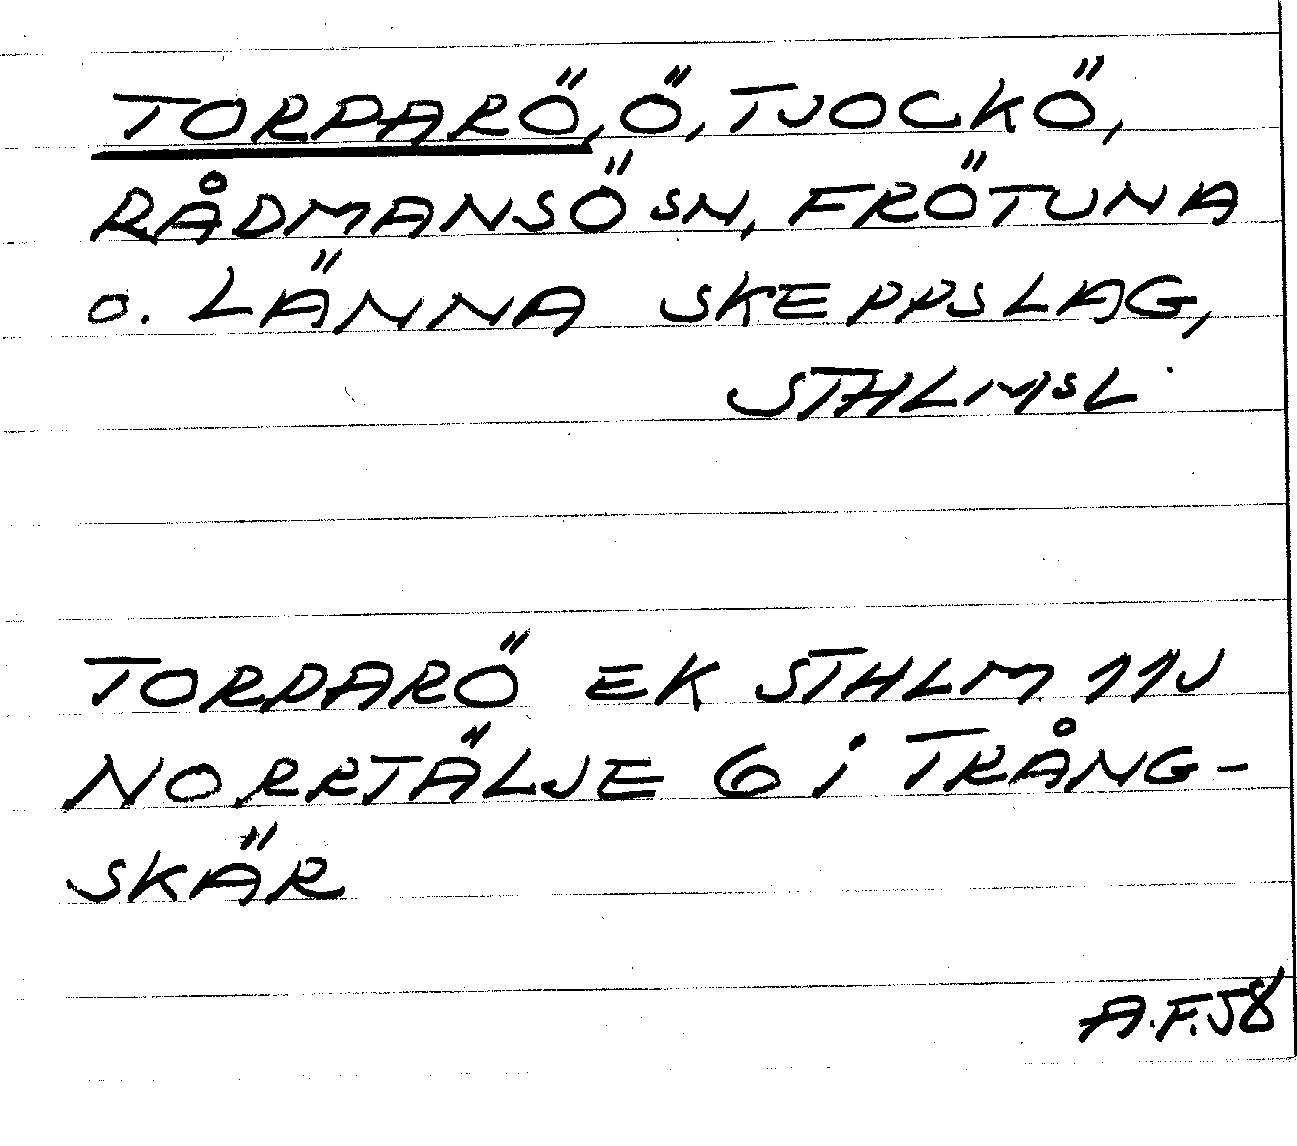 TORPARÖ, Ö, TJOCKÖ,
RÅDMANSÖ SN, FRÖTUNA
O. LÄNNA SKEPPSLAG,
STHLMSL
TORPARÖ EK STHLM 11J
NORRTÄLJE 6 i TRÅNG-
SKÄR
A.F.58